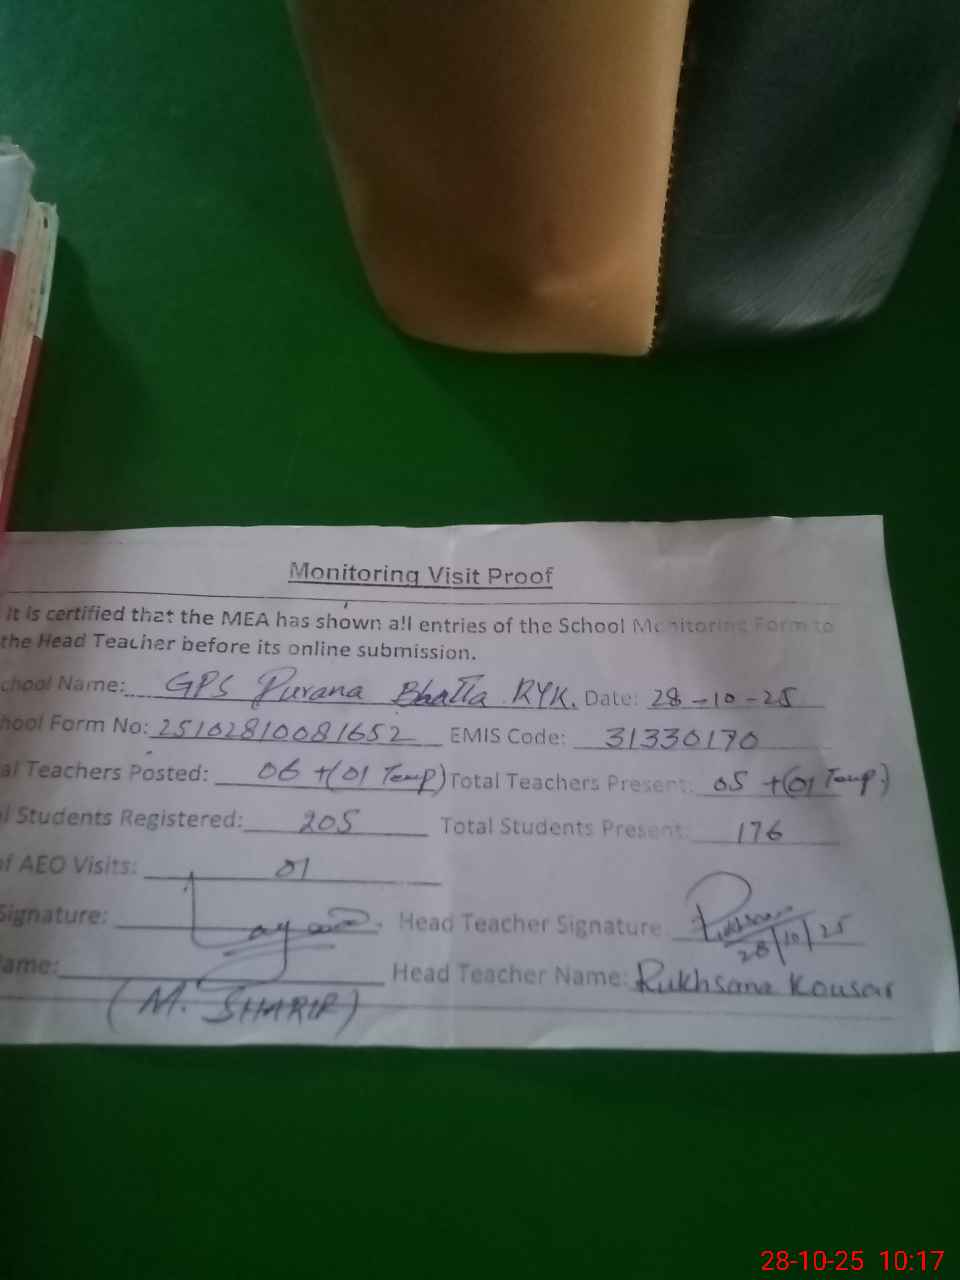 Monitoring Visit Proof
It is certified that the MEA has shown all entries of the School Monitoring Form to
the Head Teacher before its online submission.
chool Name: GPS Purana Bhatta RYK. Date: 28-10-25
hool Form No: 25102810081652 EMIS Code: 31330170
al Teachers Posted: 06 +(01 Temp) Total Teachers Present: 05 +(01 Temp.)
l Students Registered: 205 Total Students Present: 176
of AEO Visits: 01
Signature: Head Teacher Signature 28/10/25
ame: Head Teacher Name: Rukhsana Kousar
(M. SHARIF)
28-10-25 10:17